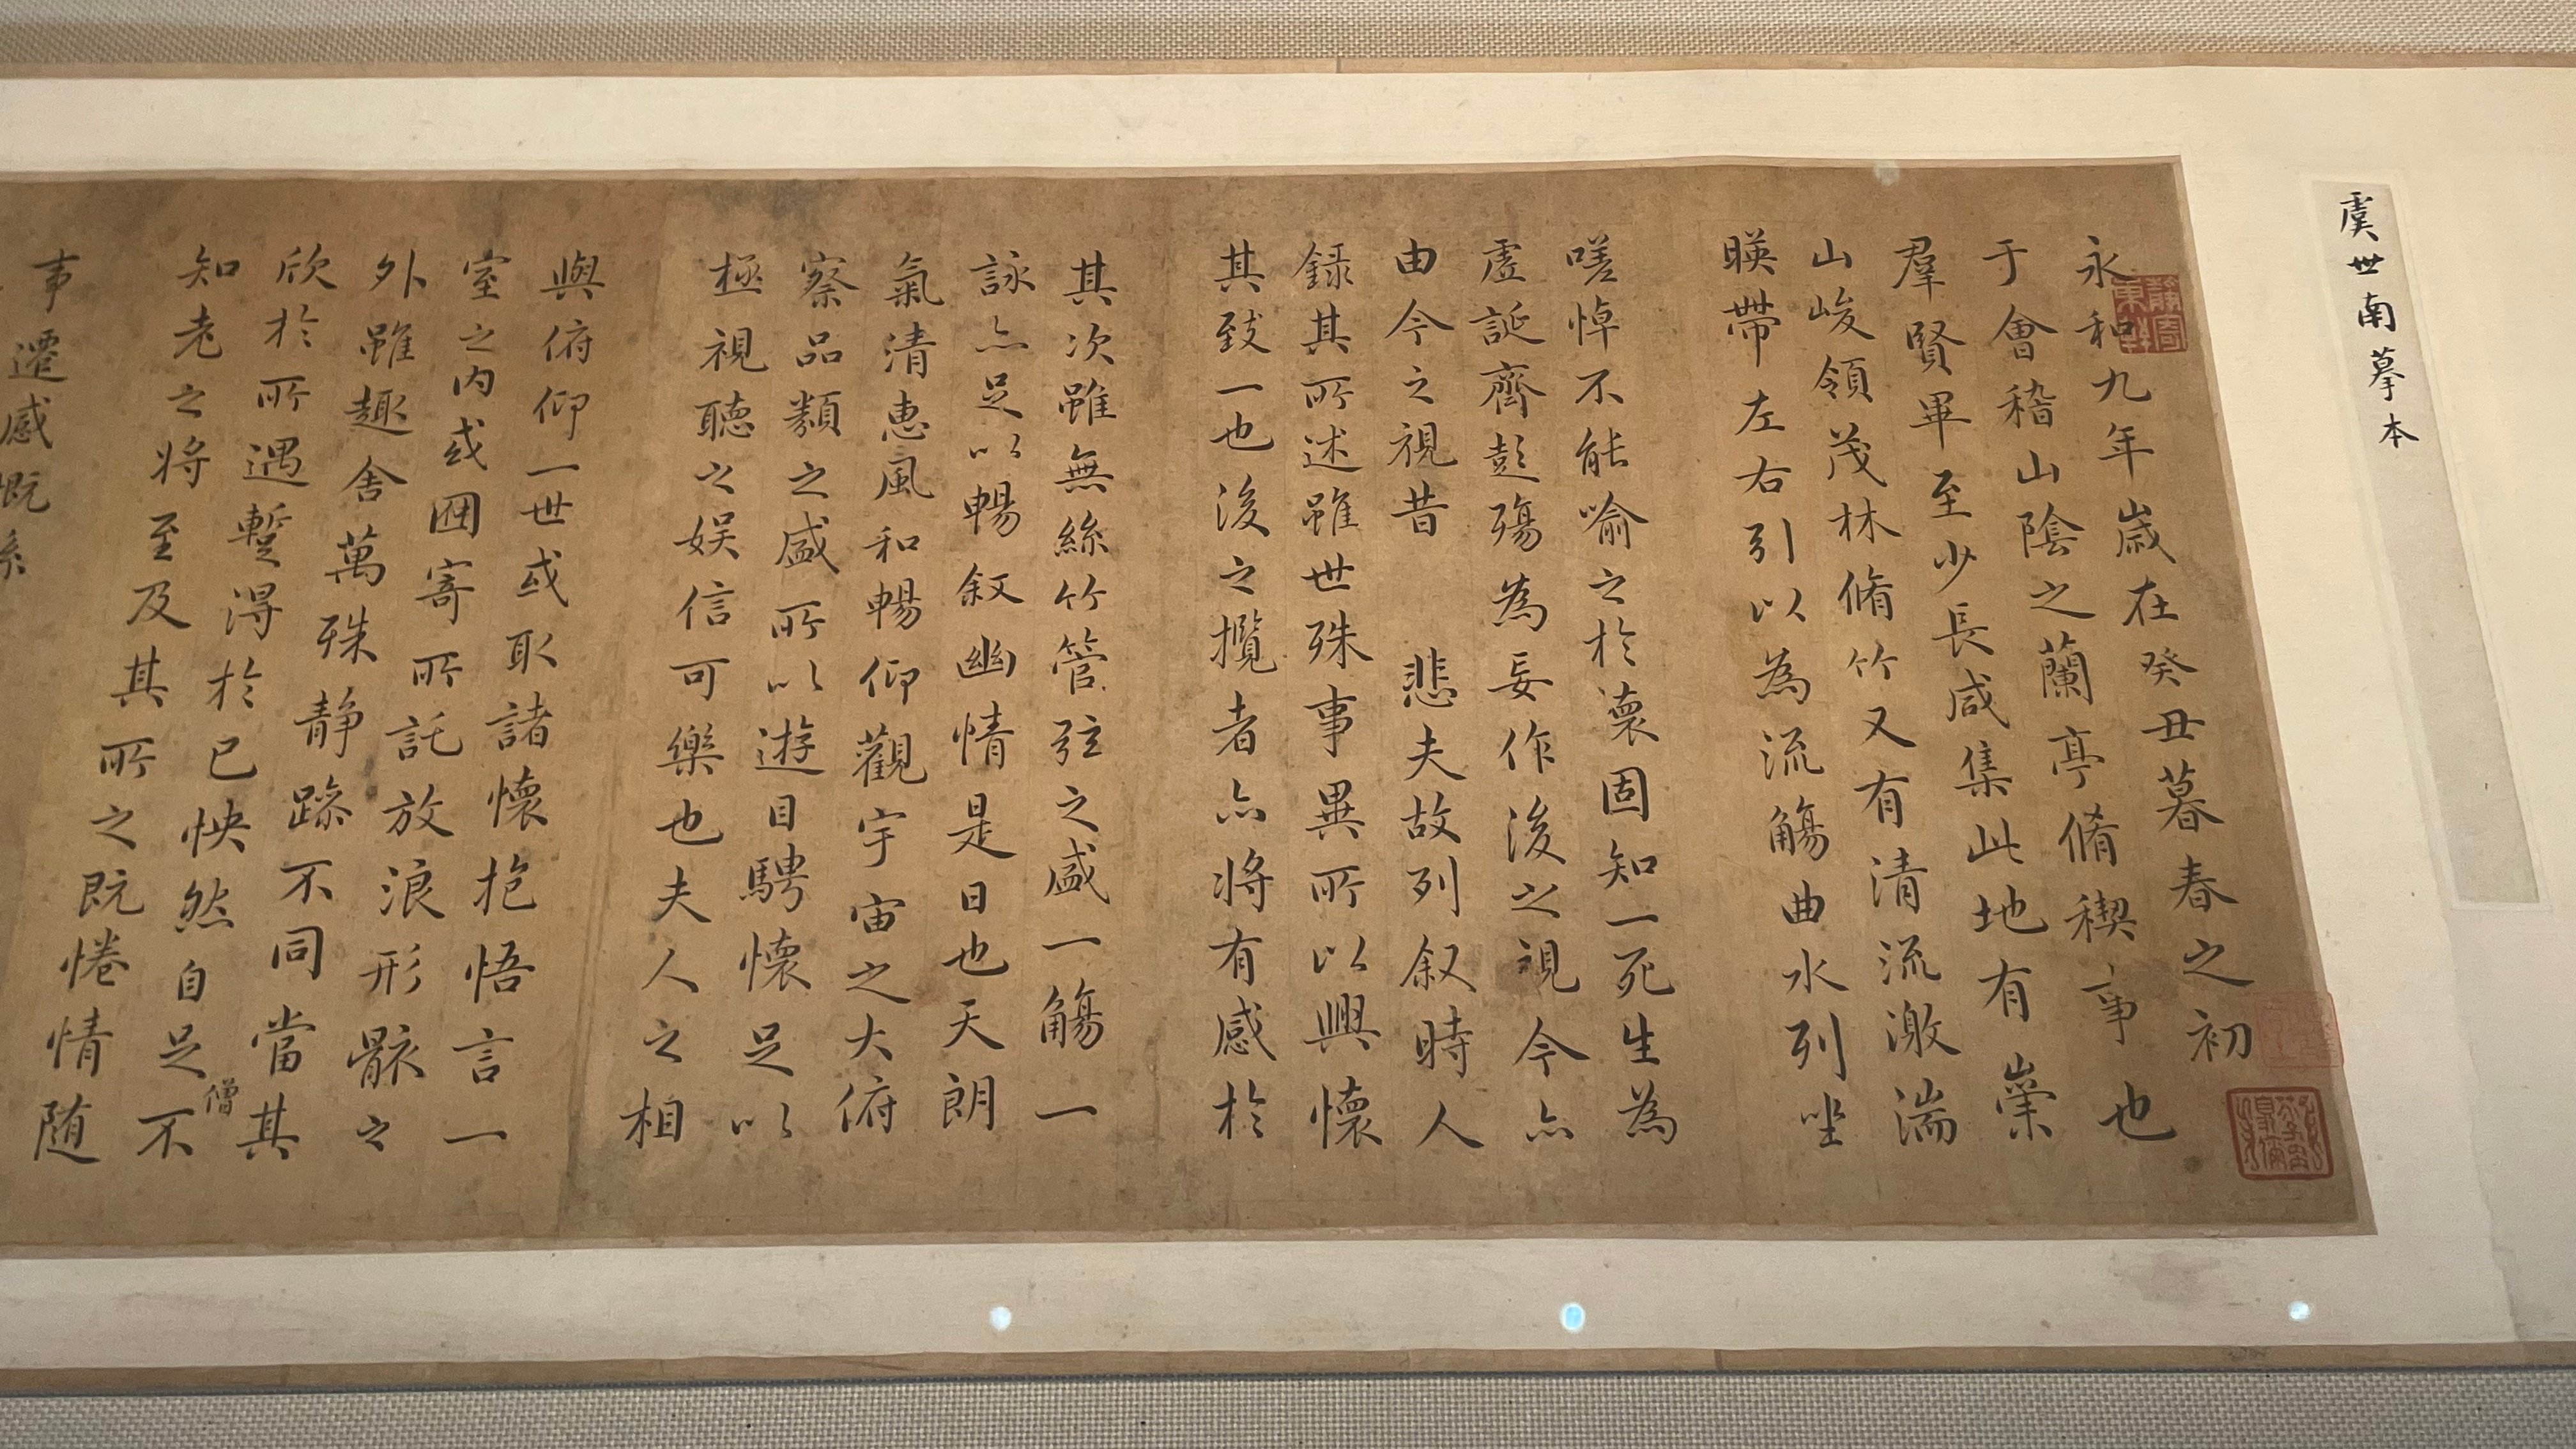 虞世南摹本
永和九年歲在癸丑暮春之初
于會稽山陰之蘭亭脩稧事也
羣賢畢至少長咸集此地有崇
山峻領茂林脩竹又有清流激湍
暎帶左右引以為流觴曲水列坐
嗟悼不能喻之於懷固知一死生為
虛誕齊彭殤為妄作後之視今亦
由今之視昔 悲夫故列叙時人
録其所述雖世殊事異所以興懷
其致一也後之攬者亦將有感於
其次雖無絲竹管弦之盛一觴一
詠亦足以暢叙幽情是日也天朗
氣清惠風和暢仰觀宇宙之大俯
察品類之盛所以遊目騁懷足以
極視聽之娛信可樂也夫人之相
與俯仰一世或取諸懷抱悟言一
室之内或因寄所託放浪形骸之
外雖趣舍萬殊静躁不同當其
欣於所遇蹔得於己怏然自足不
僧
知老之將至及其所之既惓情随
事遷感慨系
靜寄東軒